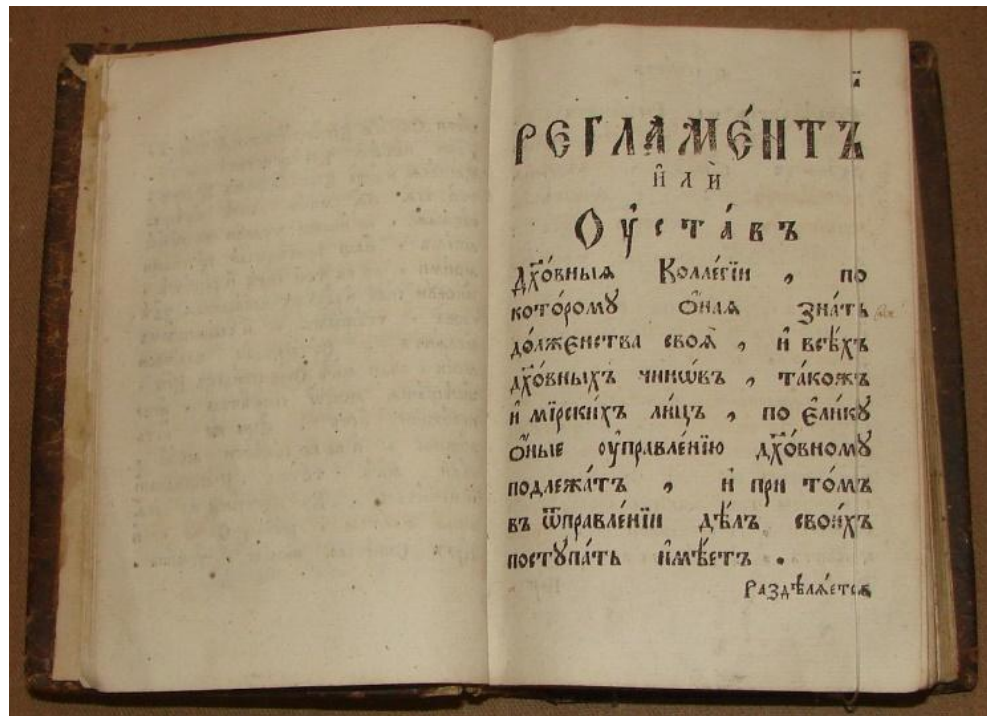 РЕГЛАМЕ́НТЪ
и҆лѝ
Оу҆ста́въ
Дх҃о́вныѧ Колле́гїи , по
кото́ромꙋ ѻ҆́наѧ зна́ть
до́лжєнства своѧ̀ , и҆ всѣ́хъ
дх҃о́вныхъ чинѡ́въ , та́кожъ
и҆ мїрски́хъ ли́цъ , по є҆ли́кꙋ
ѻ҆́ные оу҆правле́нїю дх҃о́вномꙋ
подлежа́тъ , и҆ при то́мъ
въ ѿправле́нїи дѣ́лъ свои́хъ
постꙋпа́ть и҆мѣ́етъ .
Раздѣлѧ́етсѧ